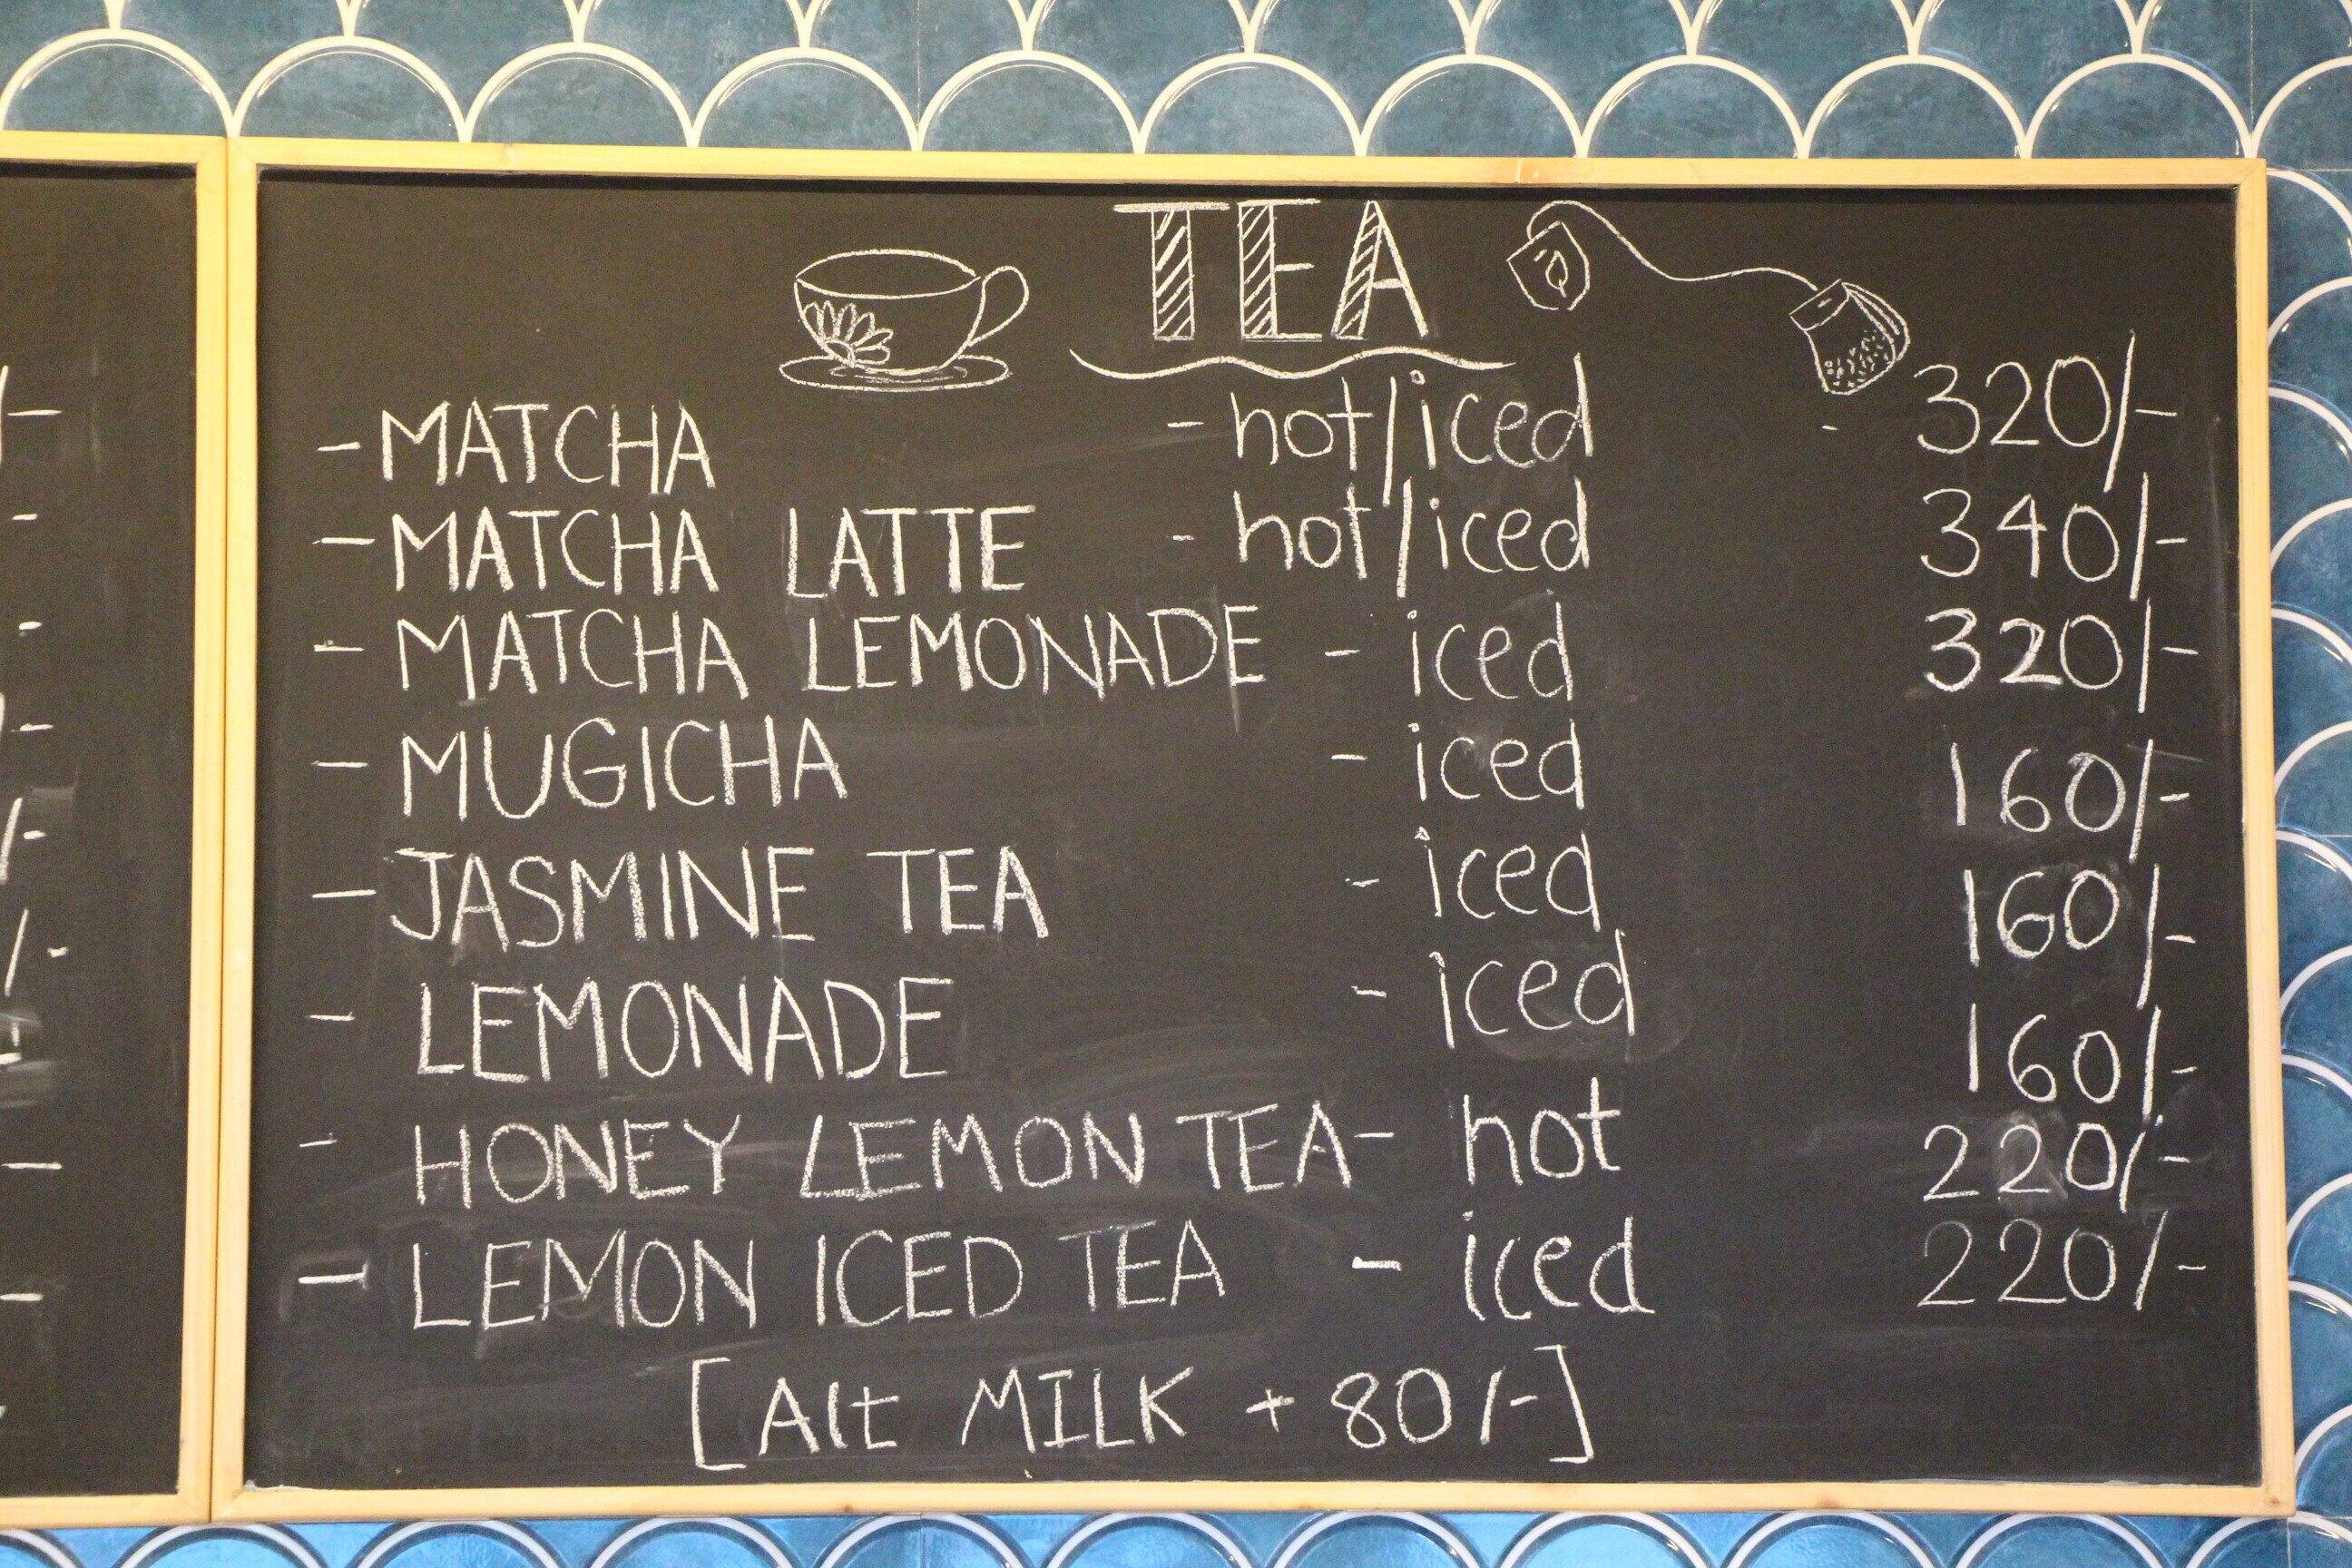 TEA
- MATCHA - hot/iced - 320/-
- MATCHA LATTE - hot/iced 340/-
- MATCHA LEMONADE - iced 320/-
- MUGICHA - iced 160/-
- JASMINE TEA - iced 160/-
- LEMONADE - iced 160/-
- HONEY LEMON TEA - hot 220/-
- LEMON ICED TEA - iced 220/-
[Alt MILK + 80/-]